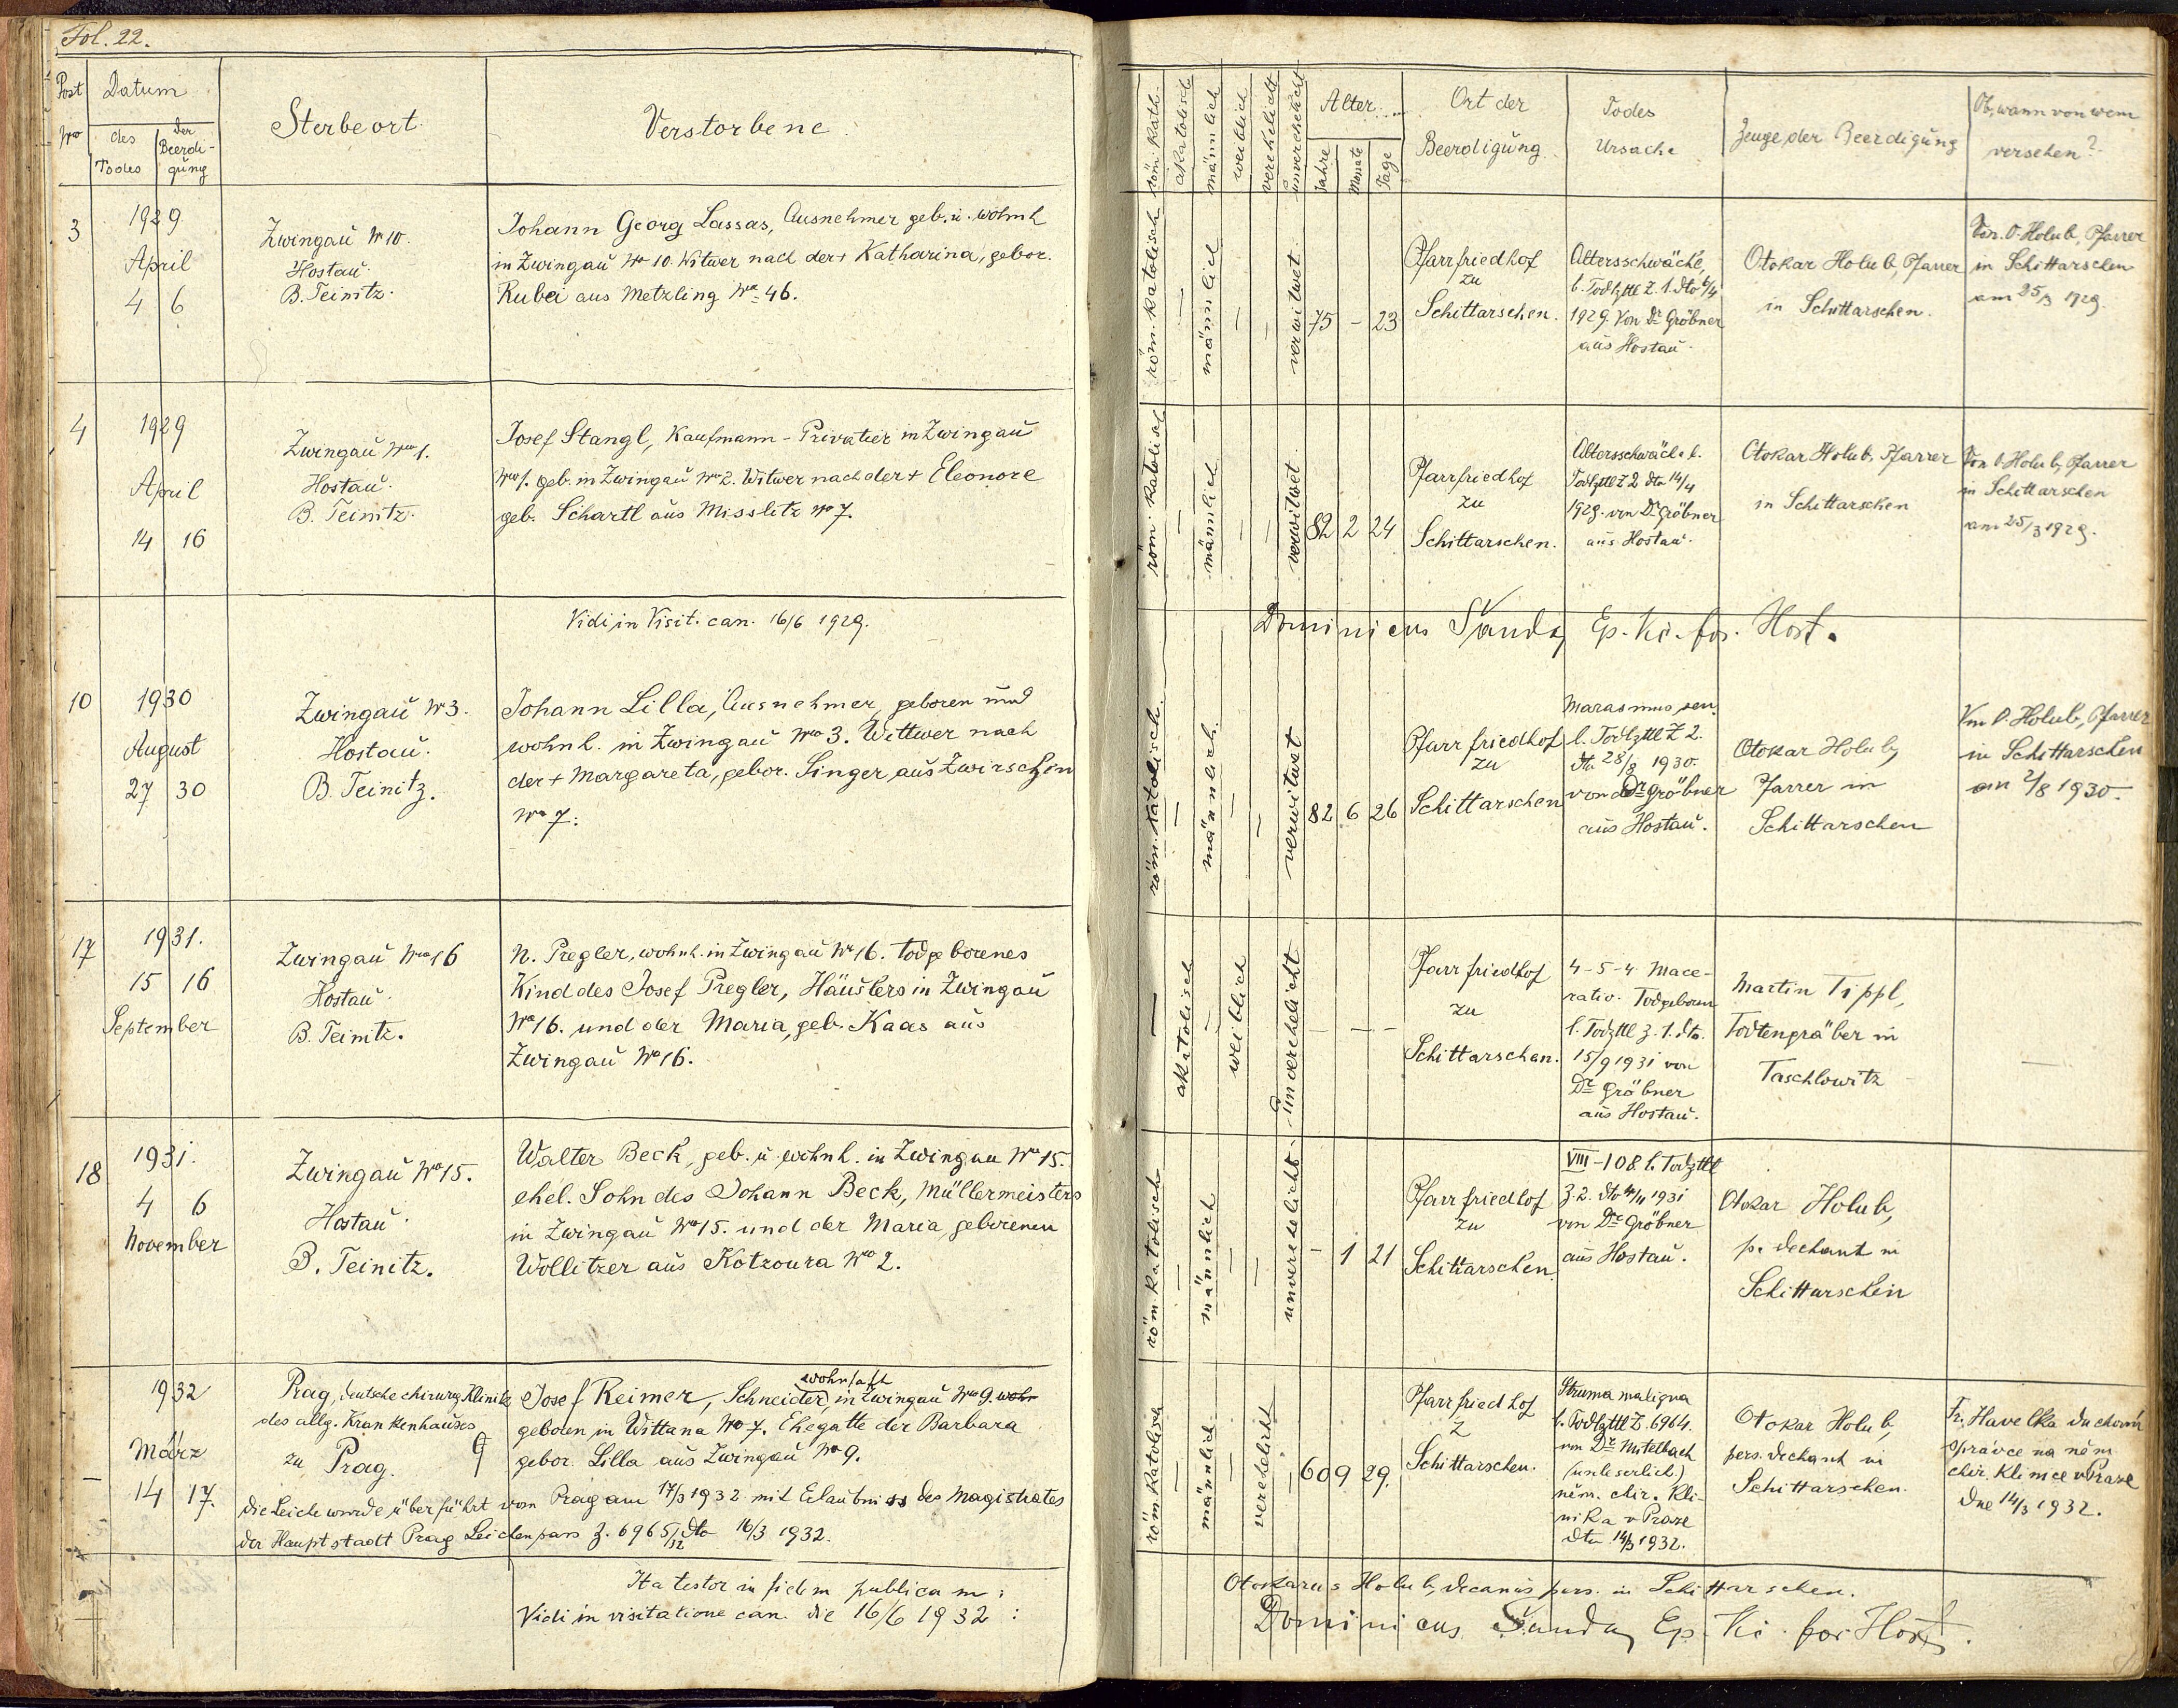 Fol. 22.
Post Nro
Datum
des Todes
der Beerdigung
Sterbeort
Verstorbene
3
1929
April
4 6
Zwingau No 10.
Hostau.
B. Teinitz.
Johann Georg Lassas, Ausnehmer geb. u. wohnh
in Zwingau No 10. Witwer nach der + Katharina, gebor.
Rubei aus Metzling No 46.
4
1929
April
14 16
Zwingau Nro 1.
Hostau.
B. Teinitz.
Josef Stangl, Kaufmann - Privatier in Zwingau
Nro 1. geb. in Zwingau Nro 2. Witwer nach der + Eleonore
geb. Schartl aus Misslitz No 7.
Vidi in Visit. can. 16/6 1929.
10
1930
August
27 30
Zwingau No 3.
Hostau.
B. Teinitz.
Johann Lilla, Ausnehmer, geboren und
wohnh. in Zwingau Nro 3. Wittwer nach
der + Margareta, gebor. Singer aus Zwirschen
No 7.
17
1931.
15 16
September
Zwingau Nro 16
Hostau.
B. Teinitz.
N. Pregler, wohnh. in Zwingau No 16. todgeborenes
Kind des Josef Pregler, Häuslers in Zwingau
No 16. und der Maria, geb. Kaas aus
Zwingau No 16.
18
1931.
4 6
November
Zwingau No 15.
Hostau.
B. Teinitz.
Walter Beck, geb. u. wohnh. in Zwingau No 15.
ehel. Sohn des Johann Beck, Müllermeisters
in Zwingau No 15. und der Maria geborenen
Wollitzer aus Kotzoura No 2.
1932
März
14 17.
Prag, deutsche chirurg Klinik
des allg. Krankenhauses
zu Prag.
wohnhaft
Josef Reimer, Schneider, in Zwingau No 9. wohn
geboren in Wittana No 7. Ehegatte der Barbara
gebor. Lilla aus Zwingau No 9.
Die Leiche wurde überführt von Prag am 17/3 1932 mit Erlaubniss des Magistrates
der Hauptstadt Prag Leichenpass Z. 6965/32 dto 16/3 1932.
Ita testor in fidem publicam:
Vidi in visitatione can. die 16/6 1932:
röm. kath.
akatolisch
männlich
weiblich
verehelicht
unverehelicht
Alter
Jahre
Monate
Tage
Ort der
Beerdigung
Todes
Ursache
Zeuge der Beerdigung
Ob, wann von wem
versehen?
röm. katolisch
—
männlich
—
—
verwitwet
75 - 23
Pfarrfriedhof
zu
Schittarschen.
Altersschwäche,
l. Todtzttl Z. 1. dto 6/4
1929. Von Dr Gröbner
aus Hostau.
Otokar Holub, Pfarrer
in Schittarschen.
Von O. Holub, Pfarrer
in Schittarschen
am 25/3 1929.
röm. katolisch
—
männlich
—
—
verwitwet
82 2 24
Pfarrfriedhof
zu
Schittarschen.
Altersschwäche l.
Todtzttl Z 2 dto 14/4
1929. von Dr Gröbner
aus Hostau.
Otokar Holub, Pfarrer
in Schittarschen
Von O. Holub, Pfarrer
in Schittarschen
am 25/3 1929.
Dominicus Šanda, Ep. Vic. for. Host.
röm. katolisch
—
männlich.
—
—
verwitwet
82 6 26
Pfarrfriedhof
zu
Schittarschen
Marasmus sen.
l. Todtzttl Z 2.
dto 28/8 1930.
von Dr Gröbner
aus Hostau.
Otokar Holub,
Pfarrer in
Schittarschen
Von O. Holub, Pfarrer
in Schittarschen
am 2/8 1930.
—
akatolisch
—
weiblich
unverehelicht
- - -
Pfarrfriedhof
zu
Schittarschen.
4-5-4. Mace-
ratio. Todgeboren
l. Todzttl Z. 1. dto.
15/9 1931 von
Dr Gröbner
aus Hostau.
Martin Tippl,
Todtengräber in
Taschlowitz
—
röm. katolisch
—
männlich
—
—
unverehelicht.
- 1 21
Pfarrfriedhof
zu
Schittarschen.
VIII-108 l. Todzttl
Z. 2. dto 4/11 1931
von Dr Gröbner
aus Hostau.
Otokar Holub,
p. Dechant in
Schittarschen
röm katolisch
—
männlich
—
verehelicht
60 9 29.
Pfarrfriedhof
Z
Schittarschen.
Struma maligna
l. Todtzttl Z. 6964.
von Dr Mitelbach
(unleserlich.)
něm. chir. Kli-
nika v Praze
dto 14/3 1932.
Otokar Holub,
pers. Dechant in
Schittarschen.
Fr. Havelka duchovní
správce na něm
chir. Klinice v Praze
dne 14/3 1932.
Otokarus Holub, decanus pers. in Schittarschen.
Dominicus Šanda, Ep. Vic. for Host.